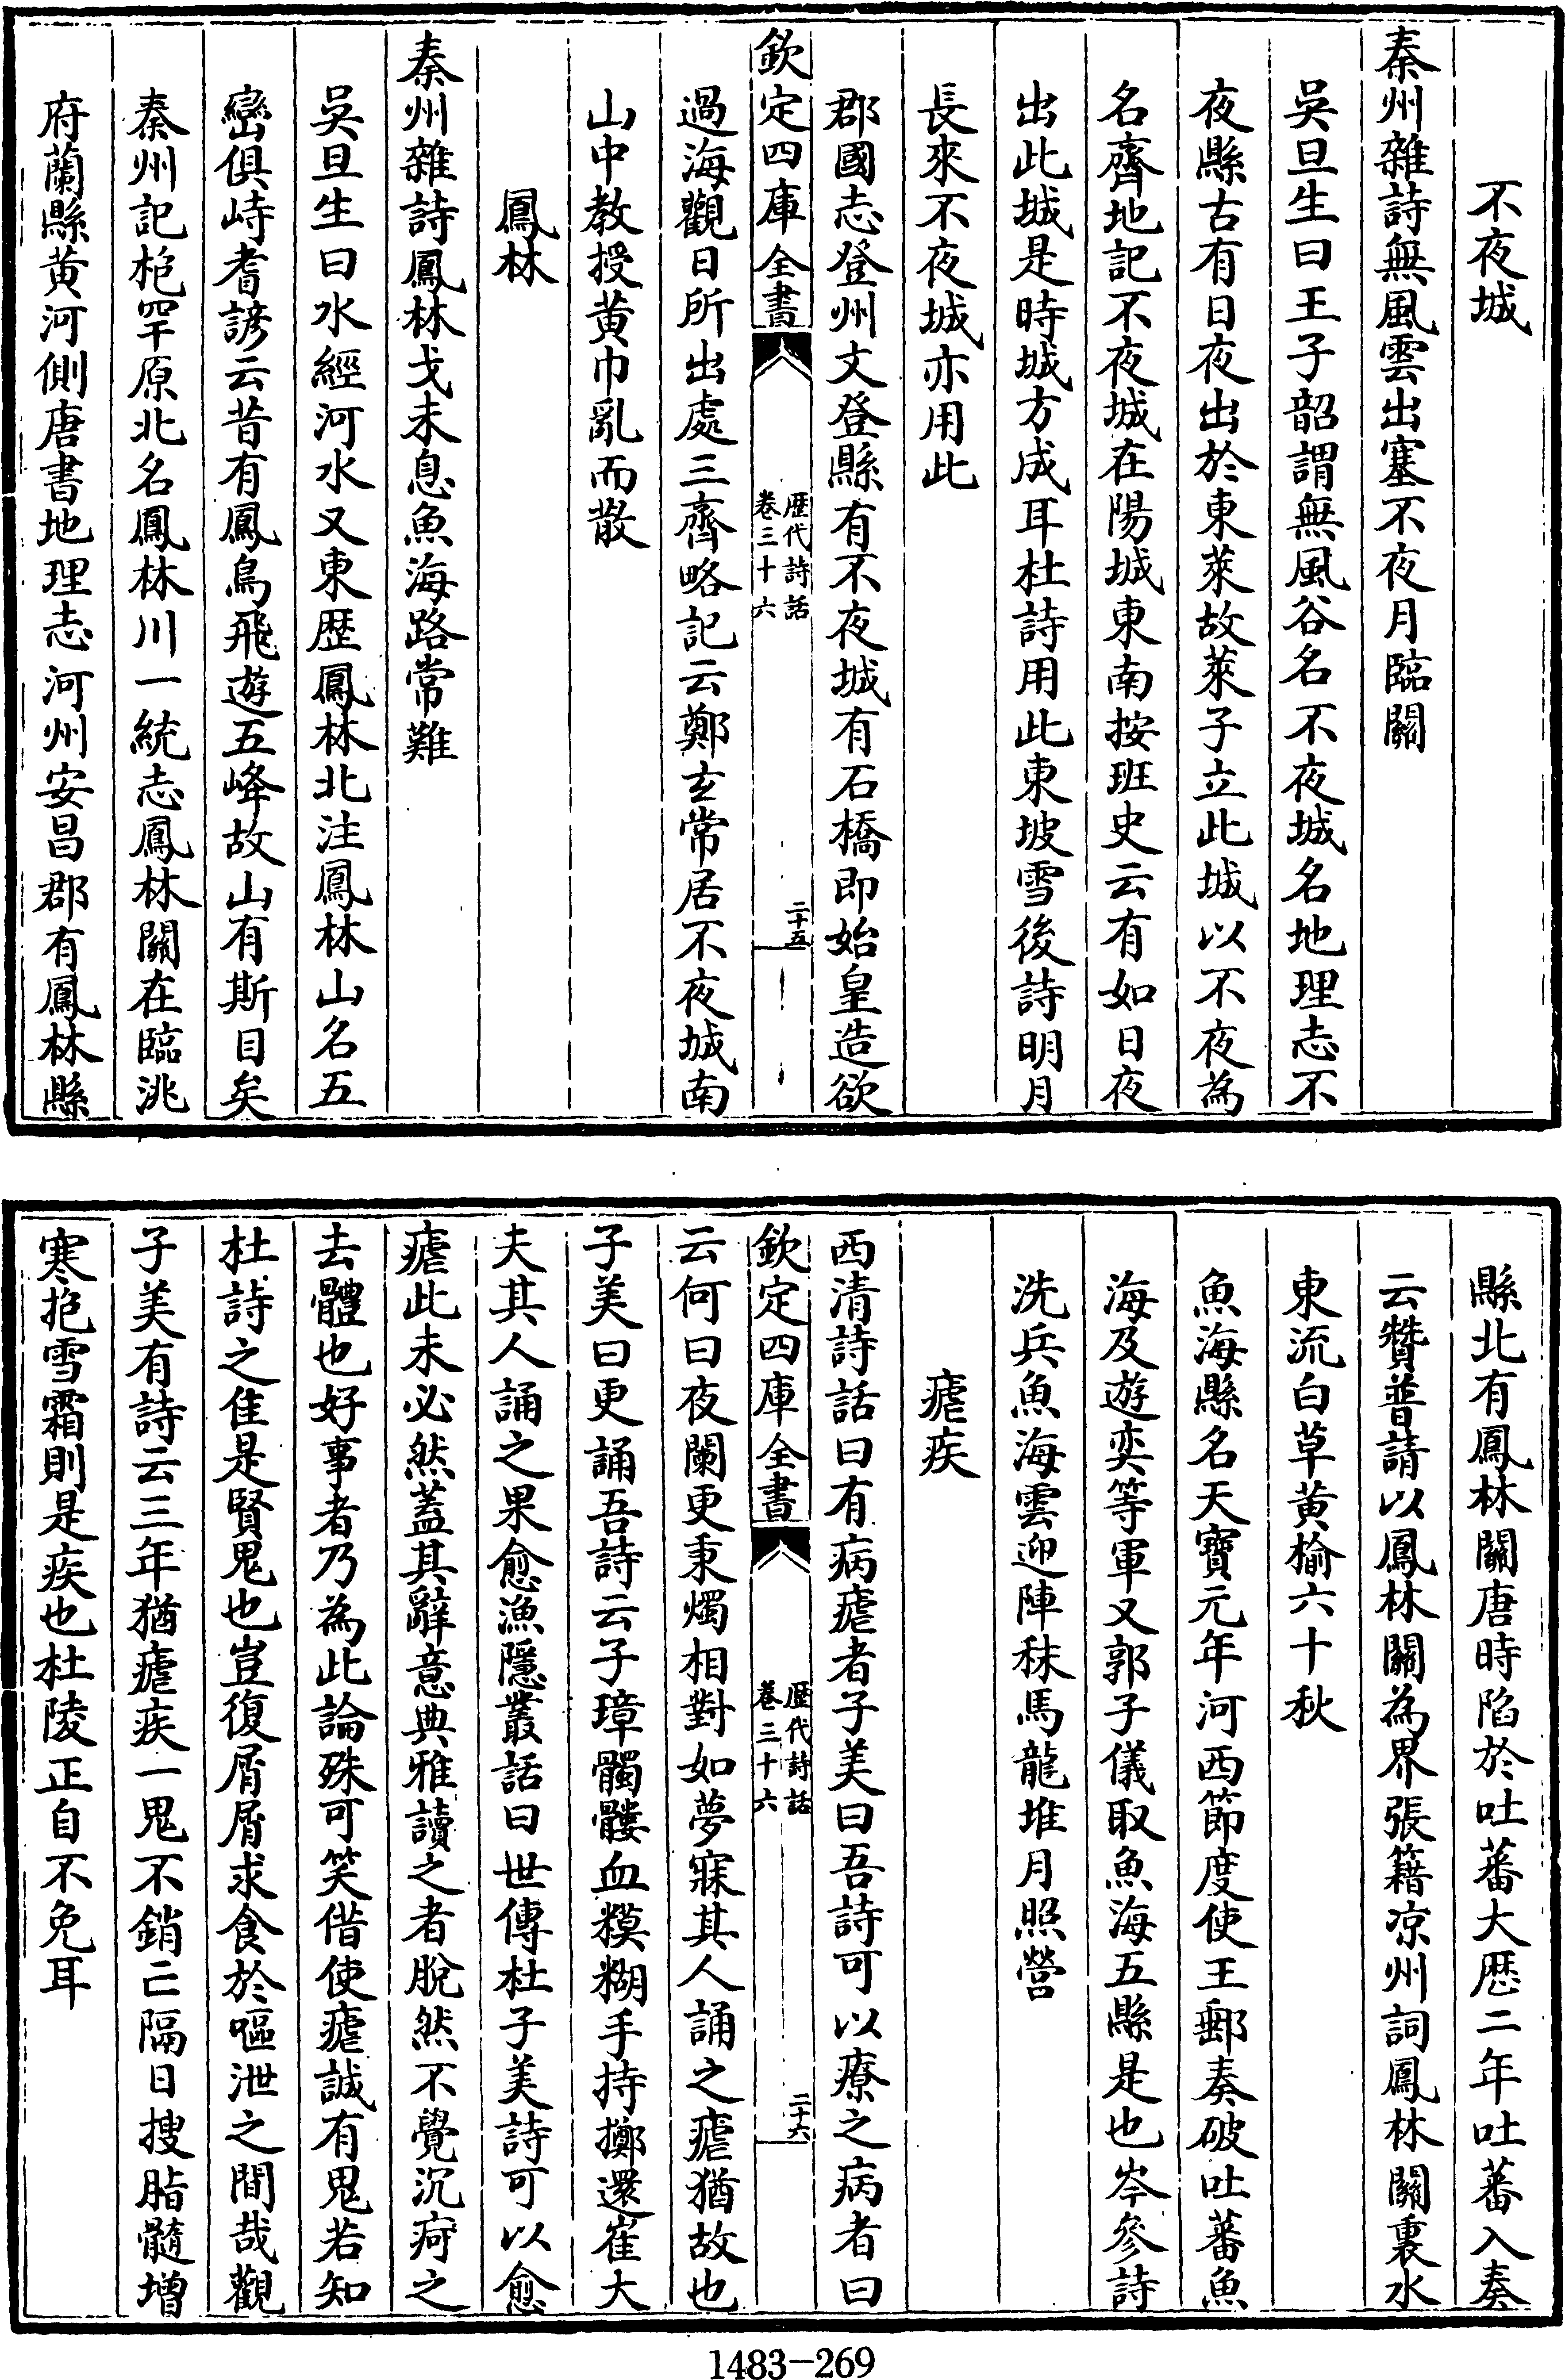 不夜城
秦州雜詩無風雲出塞不夜月臨關
吳旦生曰王子韶謂無風谷名不夜城名地理志不
夜縣古有日夜出於東萊故萊子立此城以不夜為
名齊地記不夜城在陽城東南按班史云有如日夜
出此城是時城方成耳杜詩用此東坡雪後詩明月
長來不夜城亦用此
郡國志登州文登縣有不夜城有石橋即始皇造欲
欽定四庫全書
歴代詩話
卷三十六
二十五
過海觀日所出處三齊略記云鄭玄常居不夜城南
山中教授黄巾亂而散
鳳林
秦州雜詩鳳林戈未息魚海路常難
吳旦生曰水經河水又東歴鳳林北注鳳林山名五
巒俱峙耆諺云昔有鳳鳥飛遊五峰故山有斯目矣
秦州記枹罕原北名鳳林川一統志鳳林關在臨洮
府蘭縣黄河側唐書地理志河州安昌郡有鳳林縣
縣北有鳳林關唐時陷於吐蕃大厯二年吐蕃入奏
云贊普請以鳳林關為界張籍凉州詞鳳林關裏水
東流白草黄榆六十秋
魚海縣名天寶元年河西節度使王郵奏破吐蕃魚
海及遊奕等軍又郭子儀取魚海五縣是也岑參詩
洗兵魚海雲迎陣秣馬龍堆月照營
瘧疾
西清詩話曰有病瘧者子美曰吾詩可以療之病者曰
欽定四庫全書
歴代詩話
卷三十六
二十六
云何曰夜闌更秉燭相對如夢寐其人誦之瘧猶故也
子美曰更誦吾詩云子璋髑髏血糢糊手持擲還崔大
夫其人誦之果愈漁隱叢話曰世傳杜子美詩可以愈
瘧此未必然蓋其辭意典雅讀之者脫然不覺沉疴之
去體也好事者乃為此論殊可笑借使瘧誠有鬼若知
杜詩之佳是賢鬼也豈復屑屑求食於嘔泄之間哉觀
子美有詩云三年猶瘧疾一鬼不銷亡隔日搜脂髓增
寒抱雪霜則是疾也杜陵正自不免耳
1483—269